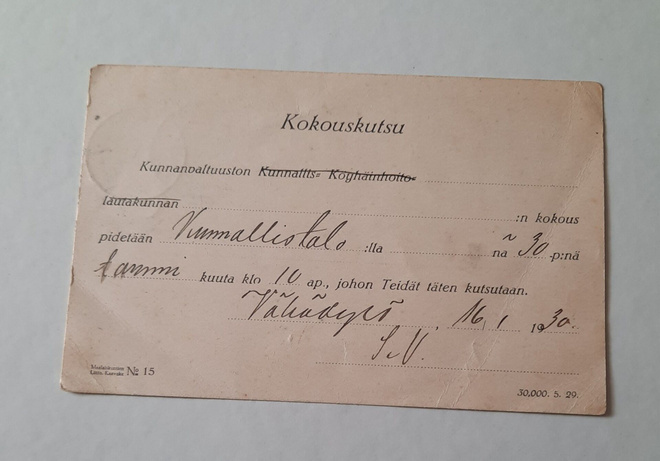 Kokouskutsu
Kunnanvaltuuston Kunnallis= Köyhäinhoito=
lautakunnan :n kokous
pidetään Kunnallistalo :lla na 30 p:nä
tammi kuuta klo 10 ap., johon Teidät täten kutsutaan.
16/1 1930.
S.V.
№ 15
30,000. 5. 29.